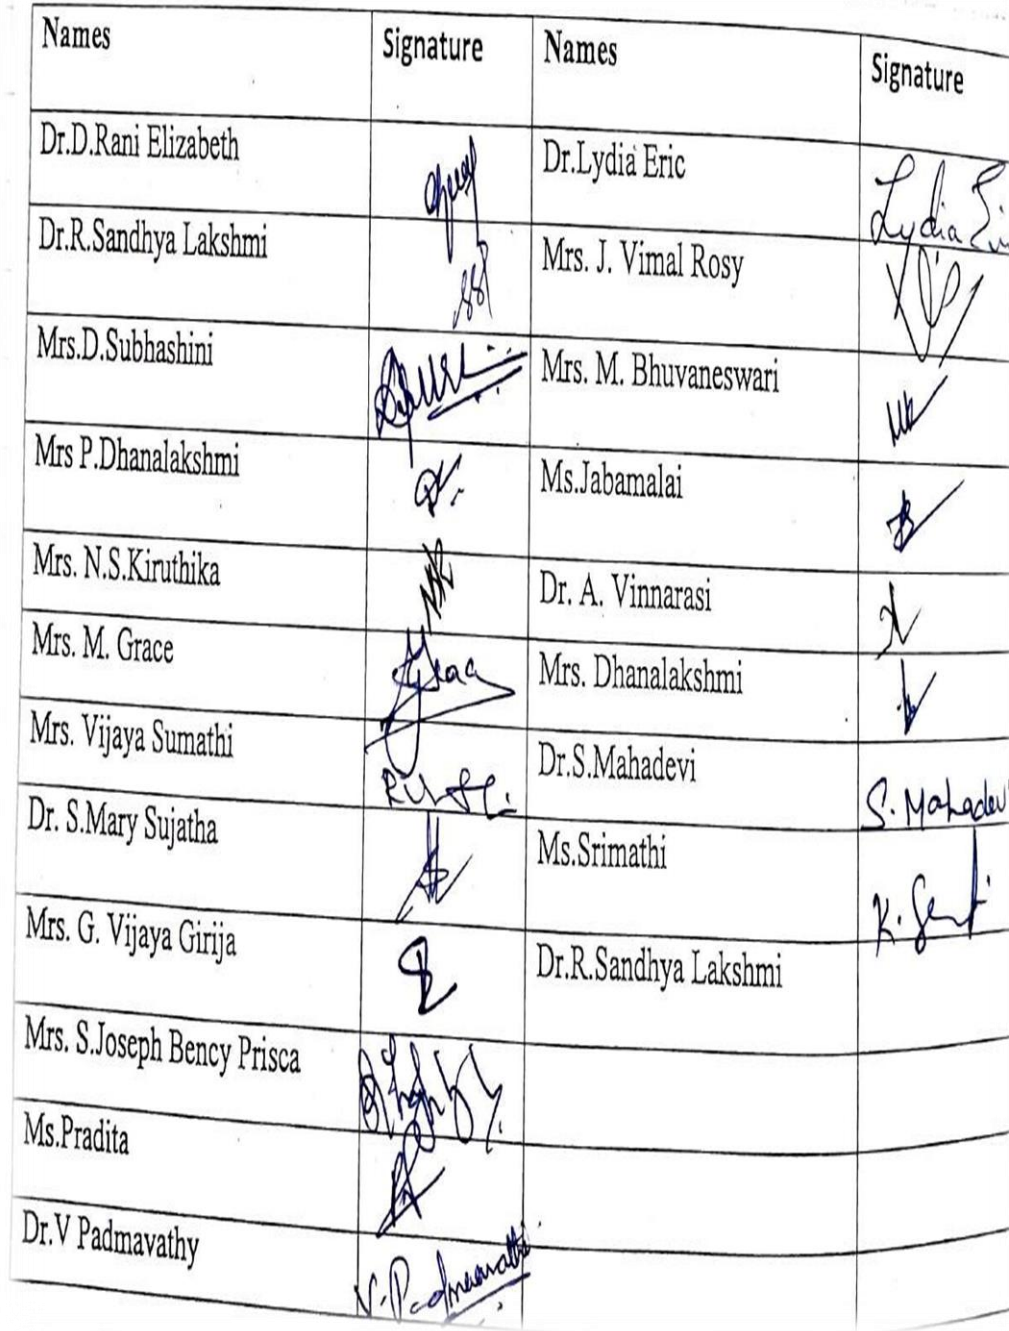 Names Signature Names Signature
Dr.D.Rani Elizabeth Dr.Lydia Eric Lydia
Dr.R.Sandhya Lakshmi Mrs. J. Vimal Rosy
Mrs.D.Subhashini Mrs. M. Bhuvaneswari
Mrs P.Dhanalakshmi Ms.Jabamalai
Mrs. N.S.Kiruthika Dr. A. Vinnarasi
Mrs. M. Grace Mrs. Dhanalakshmi
Mrs. Vijaya Sumathi Dr.S.Mahadevi S. Mahadevi
Dr. S.Mary Sujatha Ms.Srimathi
Mrs. G. Vijaya Girija Dr.R.Sandhya Lakshmi
Mrs. S.Joseph Bency Prisca
Ms.Pradita
Dr.V Padmavathy